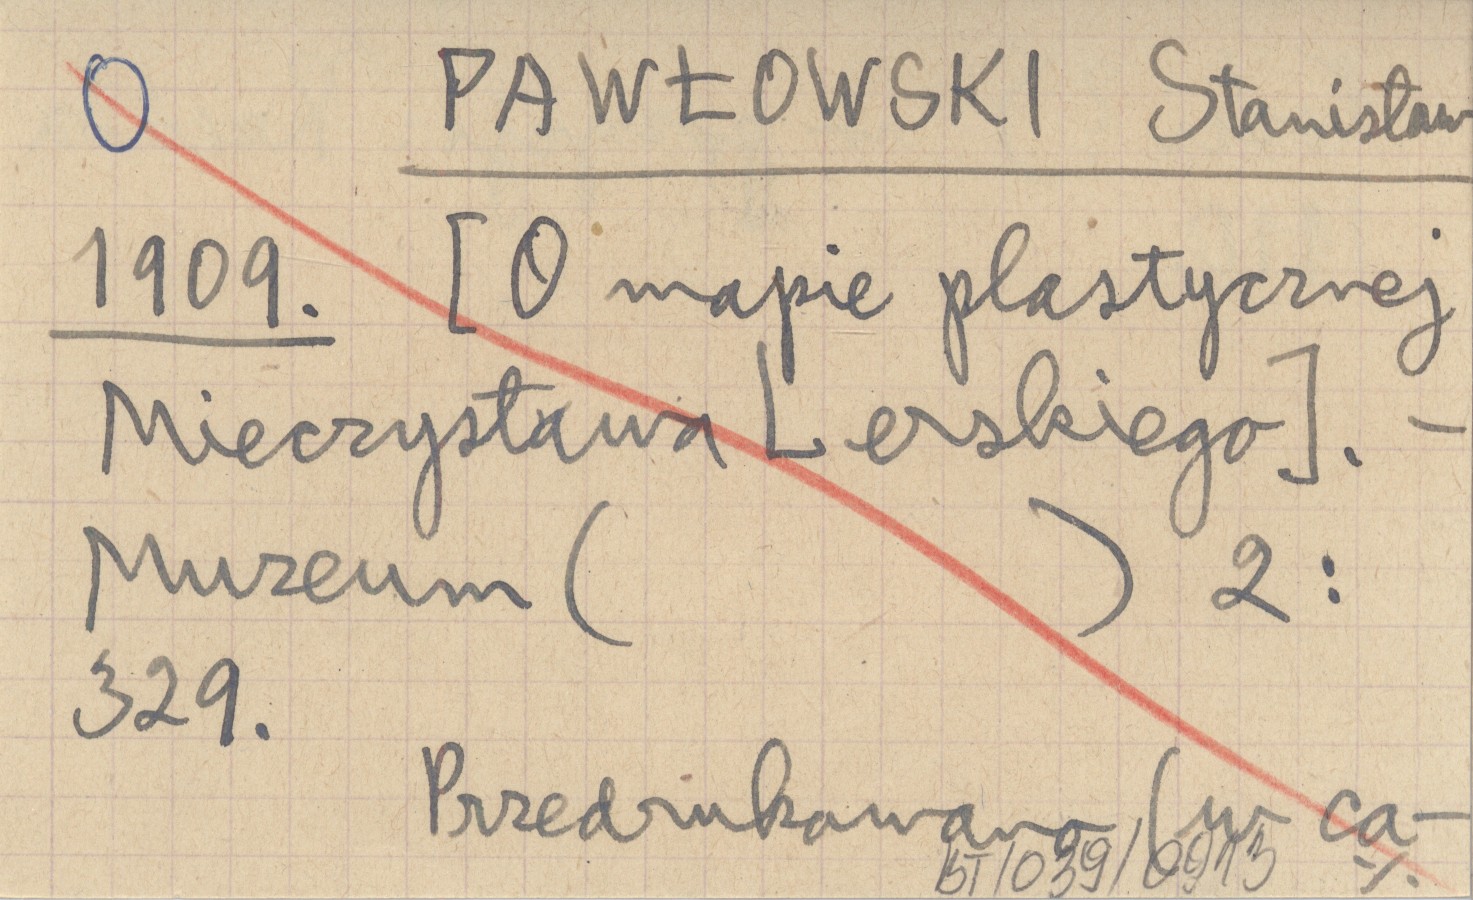 O PAWŁOWSKI Stanisław
1909. [O mapie plastycznej
Mieczysława Lerskiego]. -
Muzeum ( ) 2:
329.
Przedrukowano (w ca-
BT/039/0913 %.